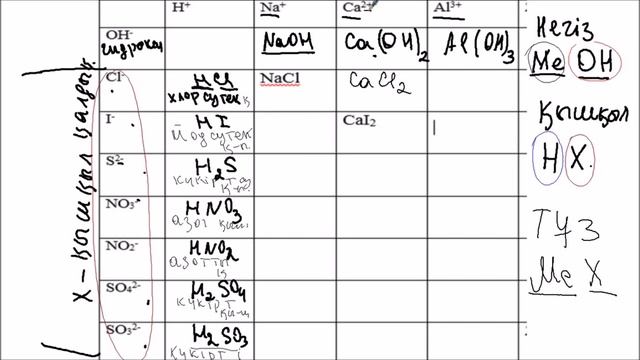 H⁺ Na⁺ Ca²⁺ Al³⁺
OH⁻ NaOH Ca(OH)₂ Al(OH)₃
Cl⁻ HCl NaCl CaCl₂
хлорсутек
I⁻ HI CaI₂
S²⁻ H₂S
NO³⁻ HNO₃
азот
NO²⁻ HNO₂
SO₄²⁻ H₂SO₄
SO₃²⁻ H₂SO₃
X – қышқыл қалдық
Негіз
Me OH
Қышқыл
H X
Тұз
Me X